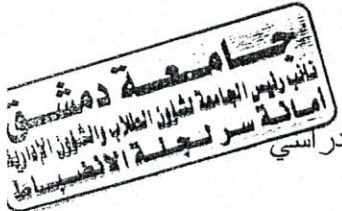 جامعة دمشق
نائب رئيس الجامعة لشؤون الطلاب والشؤون الإدارية
أمانة سر لجنة الانضباط
دراسي